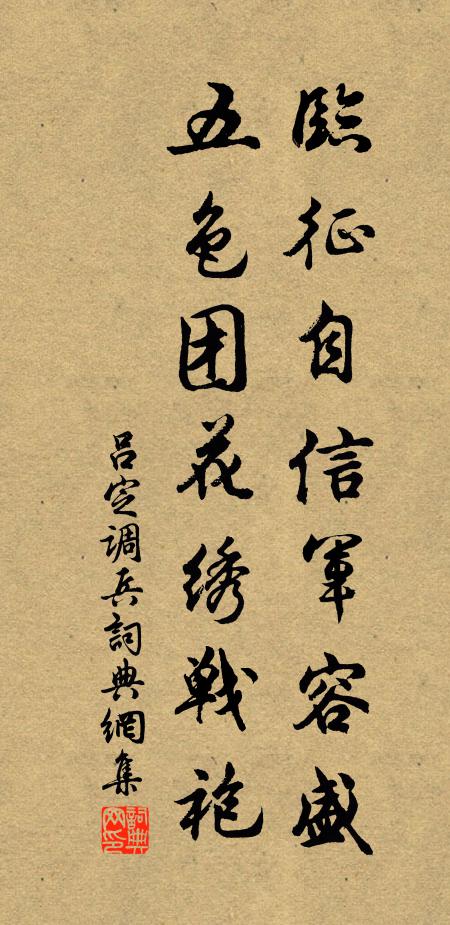 臨征自信軍容盛
五色团花绣戰袍
吕定调兵詞典網集
詞典網印